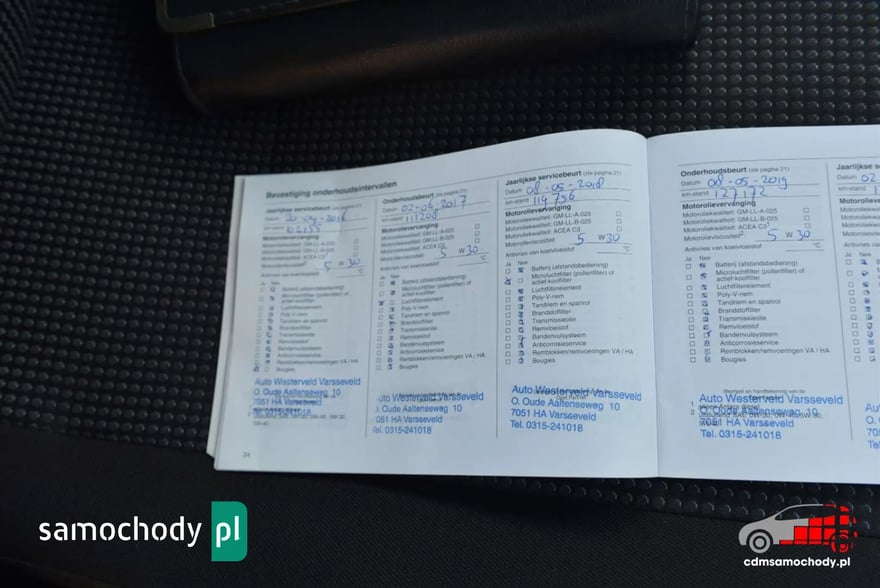 Bevestiging onderhoudsintervallen
Jaarlijkse servicebeurt (zie pagina 21)
Datum
km-stand
Motorolieverversing
Motoroliekwaliteit: GM-LL-A-025
Motoroliekwaliteit: GM-LL-B-025
Motoroliekwaliteit: ACEA C3
Motorolieviscositeit
5 W 30
Antivries van koelvloeistof °C
Ja Nee
Batterij (afstandsbediening)
Microluchtfilter (pollenfilter) of
actief-koolfilter
Luchtfilterelement
Poly-V-riem
Tandriem en spanrol
Brandstoffilter
Transmissieolie
Remvloeistof
Bandenvulsysteem
Anticorrosieservice
Remblokken/remvoeringen VA / HA
Bougies
Auto Westerveld Varsseveld
O. Oude Aaltenseweg 10
7051 HA Varsseveld
Tel. 0315-241018
24
Onderhoudsbeurt (zie pagina 21)
Datum 02-06-2017
km-stand 111208
Motorolieverversing
Motoroliekwaliteit: GM-LL-A-025
Motoroliekwaliteit: GM-LL-B-025
Motoroliekwaliteit: ACEA C3
Motorolieviscositeit
5 W 30
Antivries van koelvloeistof °C
Ja Nee
Batterij (afstandsbediening)
Microluchtfilter (pollenfilter) of
actief-koolfilter
Luchtfilterelement
Poly-V-riem
Tandriem en spanrol
Brandstoffilter
Transmissieolie
Remvloeistof
Bandenvulsysteem
Anticorrosieservice
Remblokken/remvoeringen VA / HA
Bougies
Auto Westerveld Varsseveld
. Oude Aaltenseweg 10
051 HA Varsseveld
Tel. 0315-241018
Jaarlijkse servicebeurt (zie pagina 21)
Datum 08-05-2018
km-stand 119756
Motorolieverversing
Motoroliekwaliteit: GM-LL-A-025
Motoroliekwaliteit: GM-LL-B-025
Motoroliekwaliteit: ACEA C3
Motorolieviscositeit 5 W 30
Antivries van koelvloeistof °C
Ja Nee
Batterij (afstandsbediening)
Microluchtfilter (pollenfilter) of
actief-koolfilter
Luchtfilterelement
Poly-V-riem
Tandriem en spanrol
Brandstoffilter
Transmissieolie
Remvloeistof
Bandenvulsysteem
Anticorrosieservice
Remblokken/remvoeringen VA / HA
Bougies
Auto Westerveld Varsseveld
O. Oude Aaltenseweg 10
7051 HA Varsseveld
Tel. 0315-241018
Onderhoudsbeurt (zie pagina 21)
Datum 08-05-2019
km-stand 127172
Motorolieverversing
Motoroliekwaliteit: GM-LL-A-025
Motoroliekwaliteit: GM-LL-B-025
Motoroliekwaliteit: ACEA C3
Motorolieviscositeit 5 W 30
Antivries van koelvloeistof °C
Ja Nee
Batterij (afstandsbediening)
Microluchtfilter (pollenfilter) of
actief-koolfilter
Luchtfilterelement
Poly-V-riem
Tandriem en spanrol
Brandstoffilter
Transmissieolie
Remvloeistof
Bandenvulsysteem
Anticorrosieservice
Remblokken/remvoeringen VA / HA
Bougies
Stempel en handtekening van de
Auto Westerveld Varsseveld
O. Oude Aaltenseweg 10
7051 HA Varsseveld
Tel. 0315-241018
Jaarlijkse s
Datum 02
km-stand
Motorolieve
Motoroliekwa
Motoroliekwa
Motoroliekwa
Motorolievisc
Antivries van
Ja Nee
samochody pl
cdmsamochody.pl